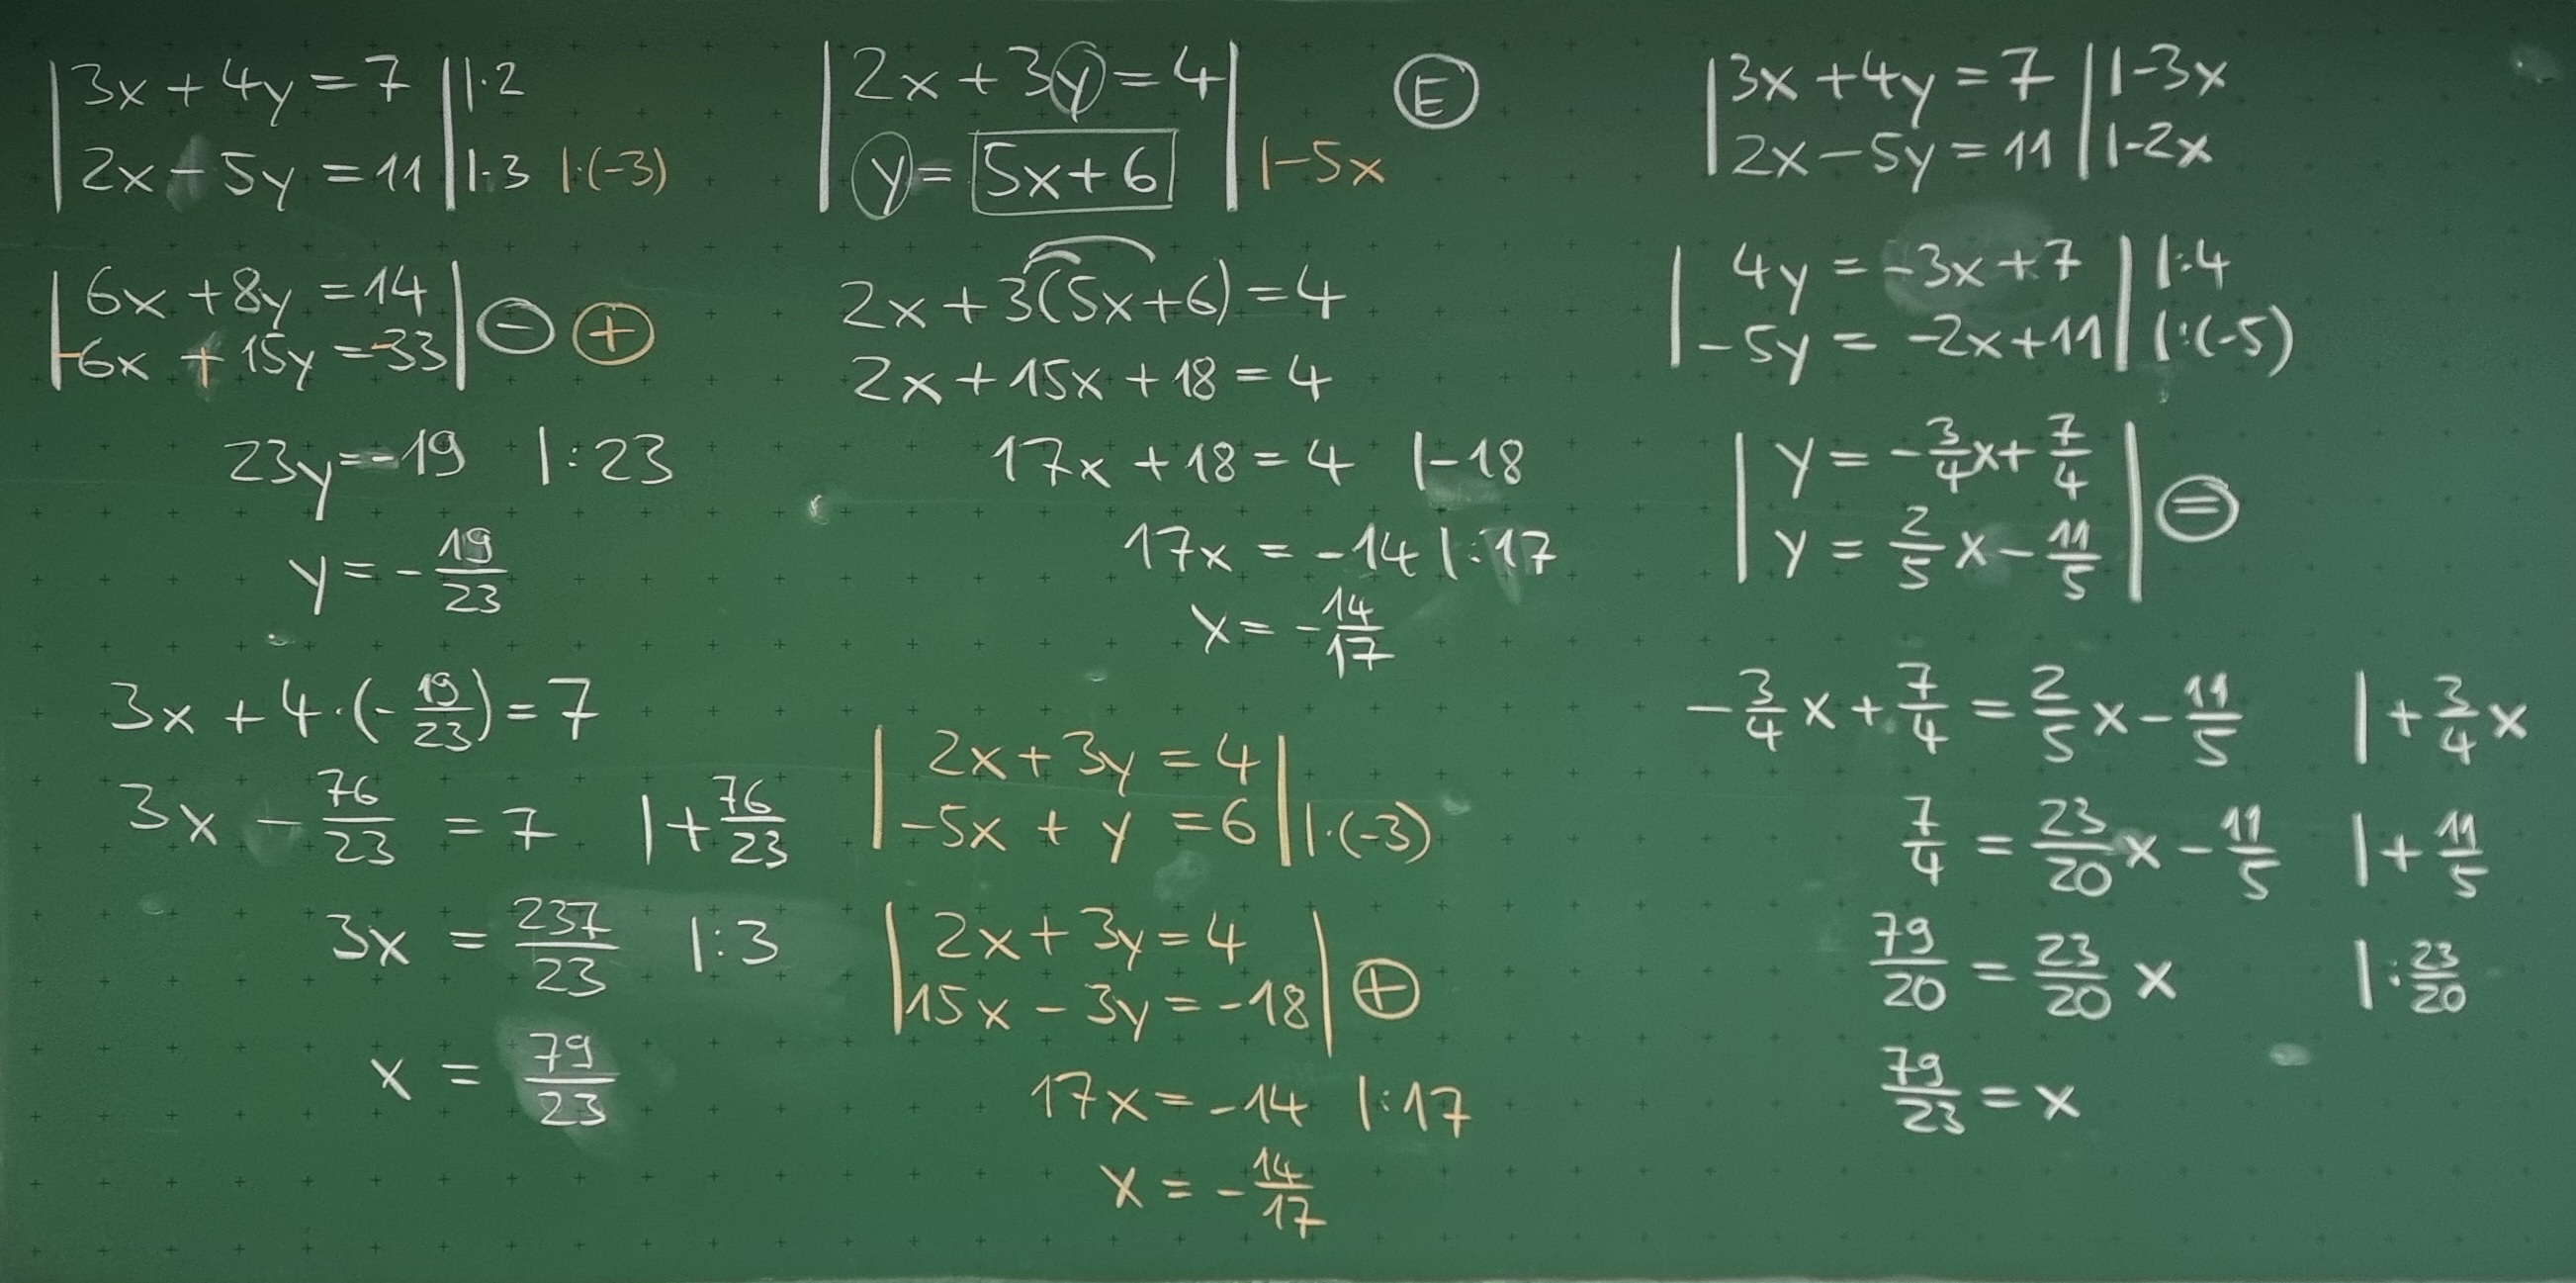 |3x + 4y = 7 | |·2
|2x - 5y = 11 | |·3 |·(-3)
|6x + 8y = 14| ⊖ ⊕
|-6x + 15y = -33|
23y = -19 |:23
y = -19/23
3x + 4·(-19/23) = 7
3x - 76/23 = 7 |+76/23
3x = 237/23 |:3
x = 79/23
|2x + 3y = 4| Ⓔ
|y = 5x + 6| |-5x
2x + 3(5x + 6) = 4
2x + 15x + 18 = 4
17x + 18 = 4 |-18
17x = -14 |:17
x = -14/17
|2x + 3y = 4|
|-5x + y = 6| |·(-3)
|2x + 3y = 4|
|15x - 3y = -18| ⊕
17x = -14 |:17
x = -14/17
|3x + 4y = 7 | |-3x
|2x - 5y = 11 | |-2x
|4y = -3x + 7| |:4
|-5y = -2x + 11| |:(-5)
|y = -3/4x + 7/4|
|y = 2/5x - 11/5| ⊜
-3/4x + 7/4 = 2/5x - 11/5 |+3/4x
7/4 = 23/20x - 11/5 |+11/5
79/20 = 23/20x |:23/20
79/23 = x